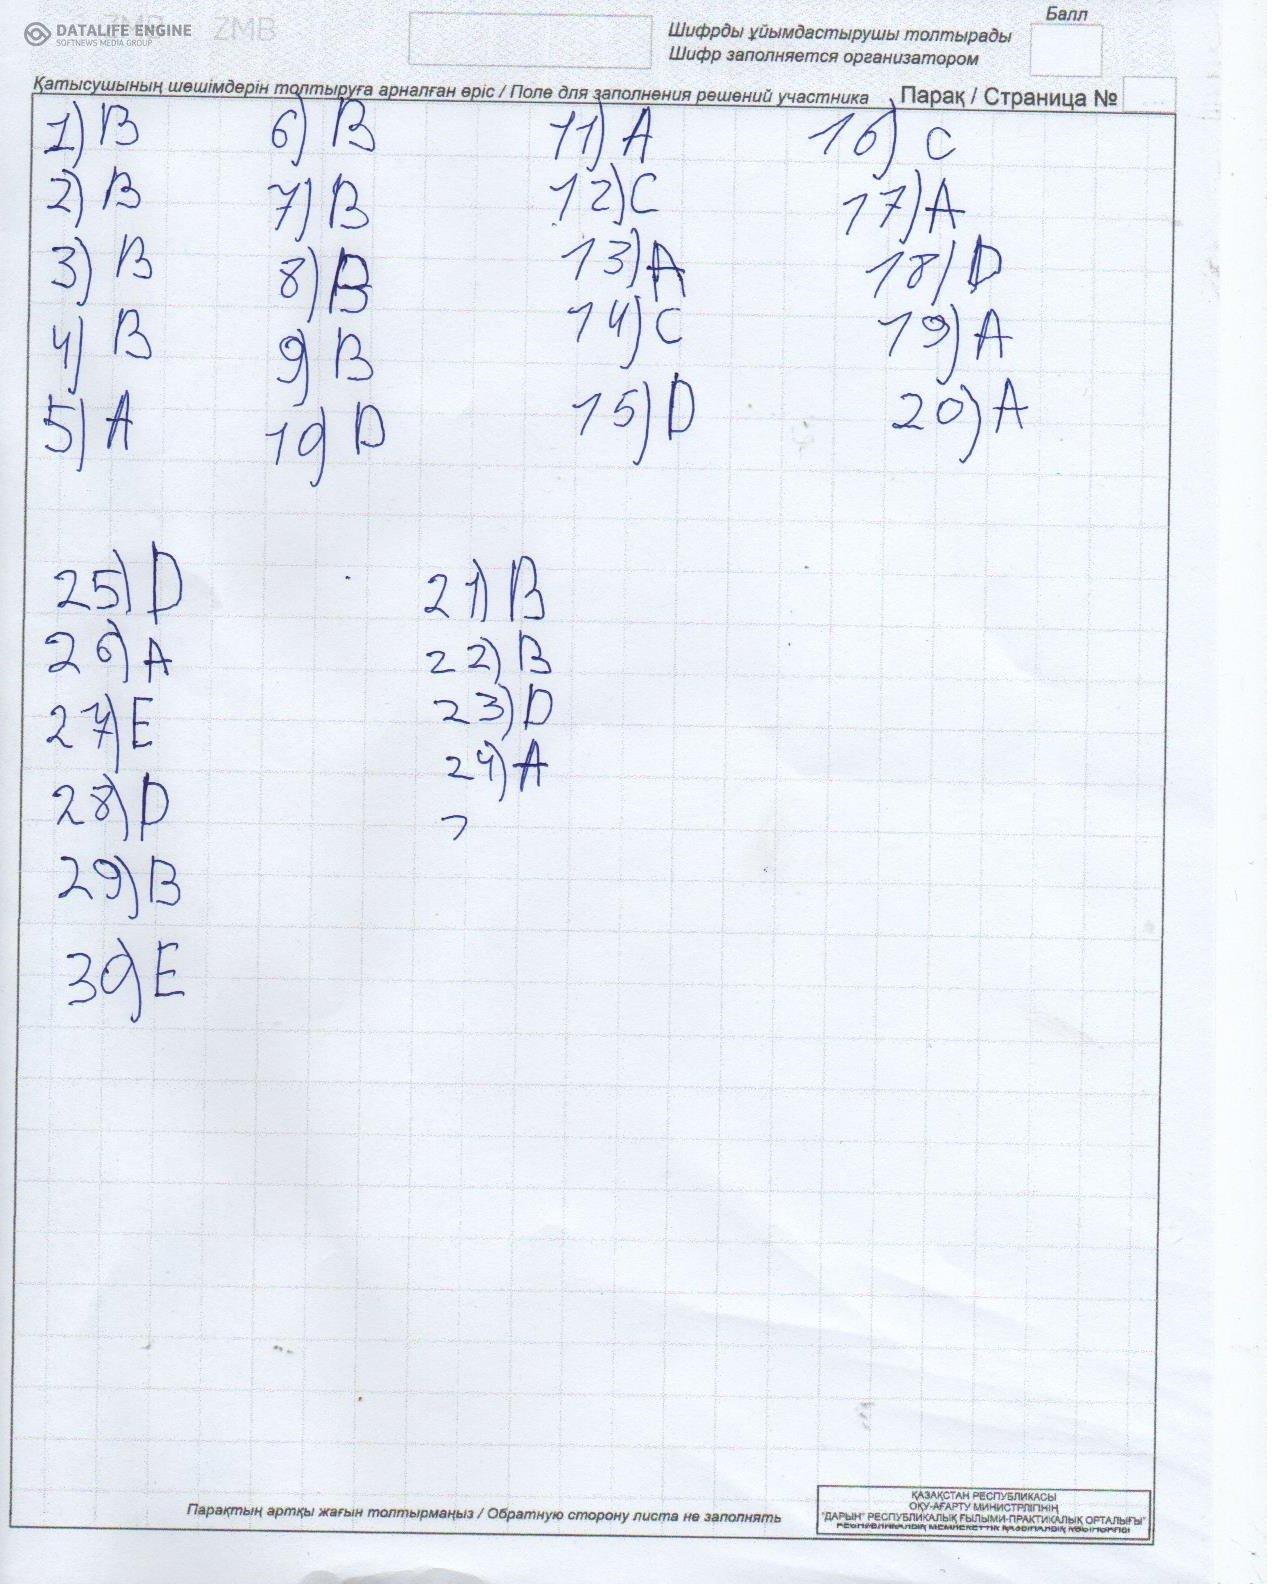 DATALIFE ENGINE
SOFTNEWS MEDIA GROUP
ZMB
Балл
Шифрды ұйымдастырушы толтырады
Шифр заполняется организатором
Қатысушының шешімдерін толтыруға арналған өріс / Поле для заполнения решений участника
Парақ / Страница №
1) B
2) B
3) B
4) B
5) A
6) B
7) B
8) B
9) B
10) D
11) A
12) C
13) A
14) C
15) D
16) C
17) A
18) D
19) A
20) A
25) D
26) A
27) E
28) D
29) B
30) E
21) B
22) B
23) D
24) A
2
Парақтың артқы жағын толтырмаңыз / Обратную сторону листа не заполнять
ҚАЗАҚСТАН РЕСПУБЛИКАСЫ
ОҚУ-АҒАРТУ МИНИСТРЛІГІНІҢ
"ДАРЫН" РЕСПУБЛИКАЛЫҚ ҒЫЛЫМИ-ПРАКТИКАЛЫҚ ОРТАЛЫҒЫ"